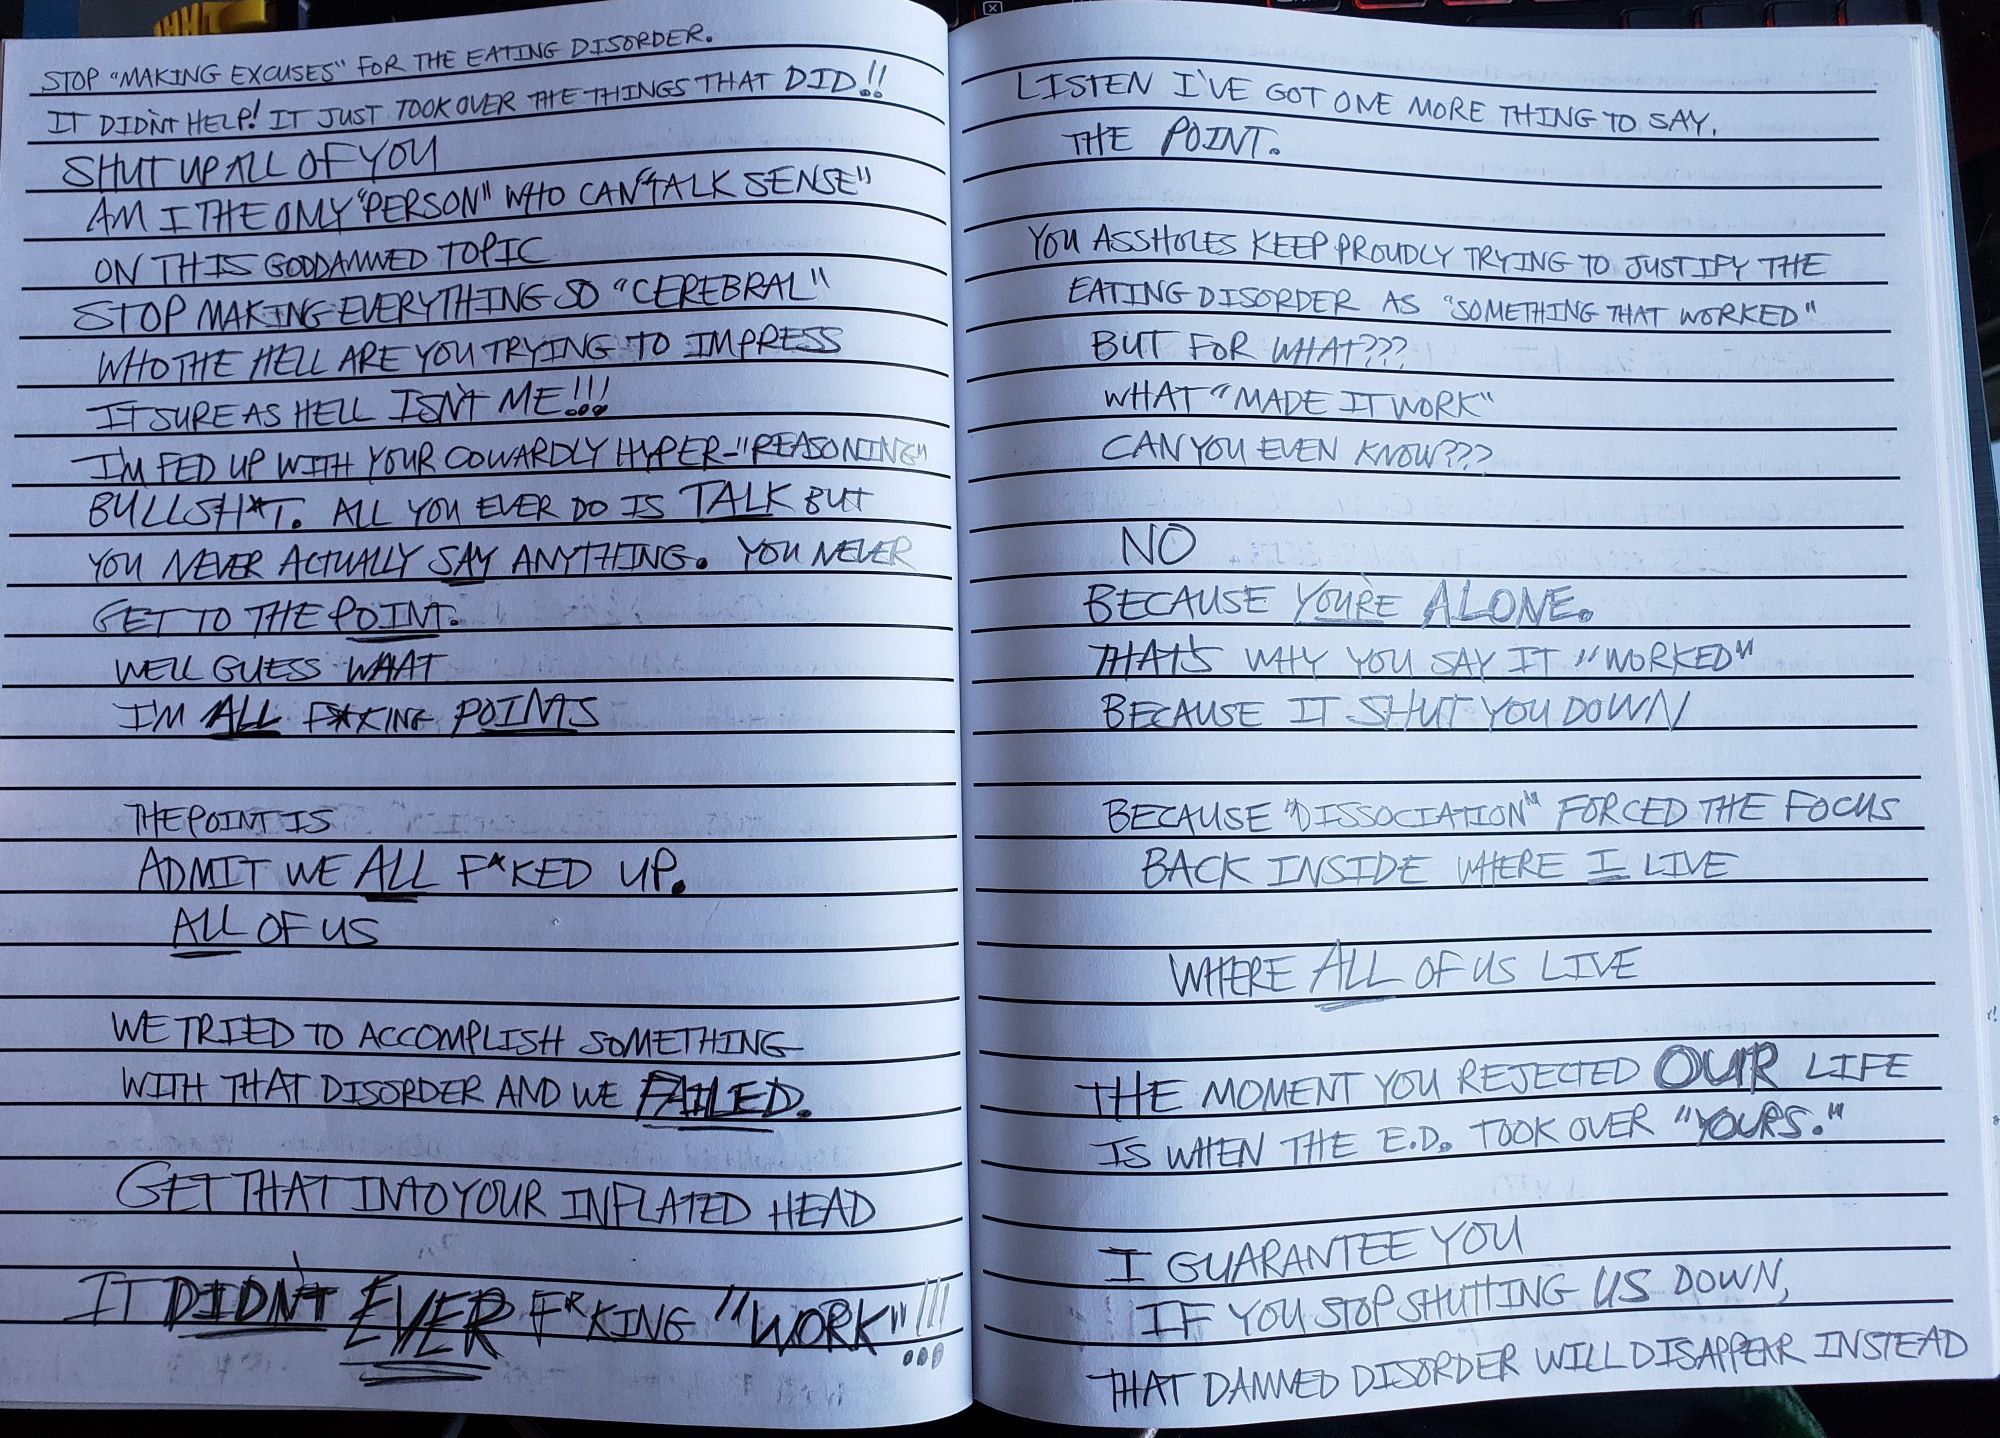 STOP "MAKING EXCUSES" FOR THE EATING DISORDER.
IT DIDN'T HELP! IT JUST TOOK OVER THE THINGS THAT DID!!
SHUT UP ALL OF YOU
AM I THE ONLY "PERSON" WHO CAN "TALK SENSE"
ON THIS GODDAMNED TOPIC
STOP MAKING EVERYTHING SO "CEREBRAL"
WHO THE HELL ARE YOU TRYING TO IMPRESS
IT SURE AS HELL ISN'T ME!!!
I'M FED UP WITH YOUR COWARDLY HYPER-"REASONING"
BULLSH*T. ALL YOU EVER DO IS TALK BUT
YOU NEVER ACTUALLY SAY ANYTHING. YOU NEVER
GET TO THE POINT.
WELL GUESS WHAT
I'M ALL F*KING POINTS
THE POINT IS
ADMIT WE ALL F*KED UP.
ALL OF US
WE TRIED TO ACCOMPLISH SOMETHING
WITH THAT DISORDER AND WE FAILED.
GET THAT INTO YOUR INFLATED HEAD
IT DIDN'T EVER F*KING "WORK"!!!
LISTEN I'VE GOT ONE MORE THING TO SAY.
THE POINT.
YOU ASSHOLES KEEP PROUDLY TRYING TO JUSTIFY THE
EATING DISORDER AS "SOMETHING THAT WORKED"
BUT FOR WHAT???
WHAT "MADE IT WORK"
CAN YOU EVEN KNOW???
NO
BECAUSE YOU'RE ALONE.
THAT'S WHY YOU SAY IT "WORKED"
BECAUSE IT SHUT YOU DOWN
BECAUSE "DISSOCIATION" FORCED THE FOCUS
BACK INSIDE WHERE I LIVE
WHERE ALL OF US LIVE
THE MOMENT YOU REJECTED OUR LIFE
IS WHEN THE E.D. TOOK OVER "YOURS."
I GUARANTEE YOU
IF YOU STOP SHUTTING US DOWN,
THAT DAMNED DISORDER WILL DISAPPEAR INSTEAD